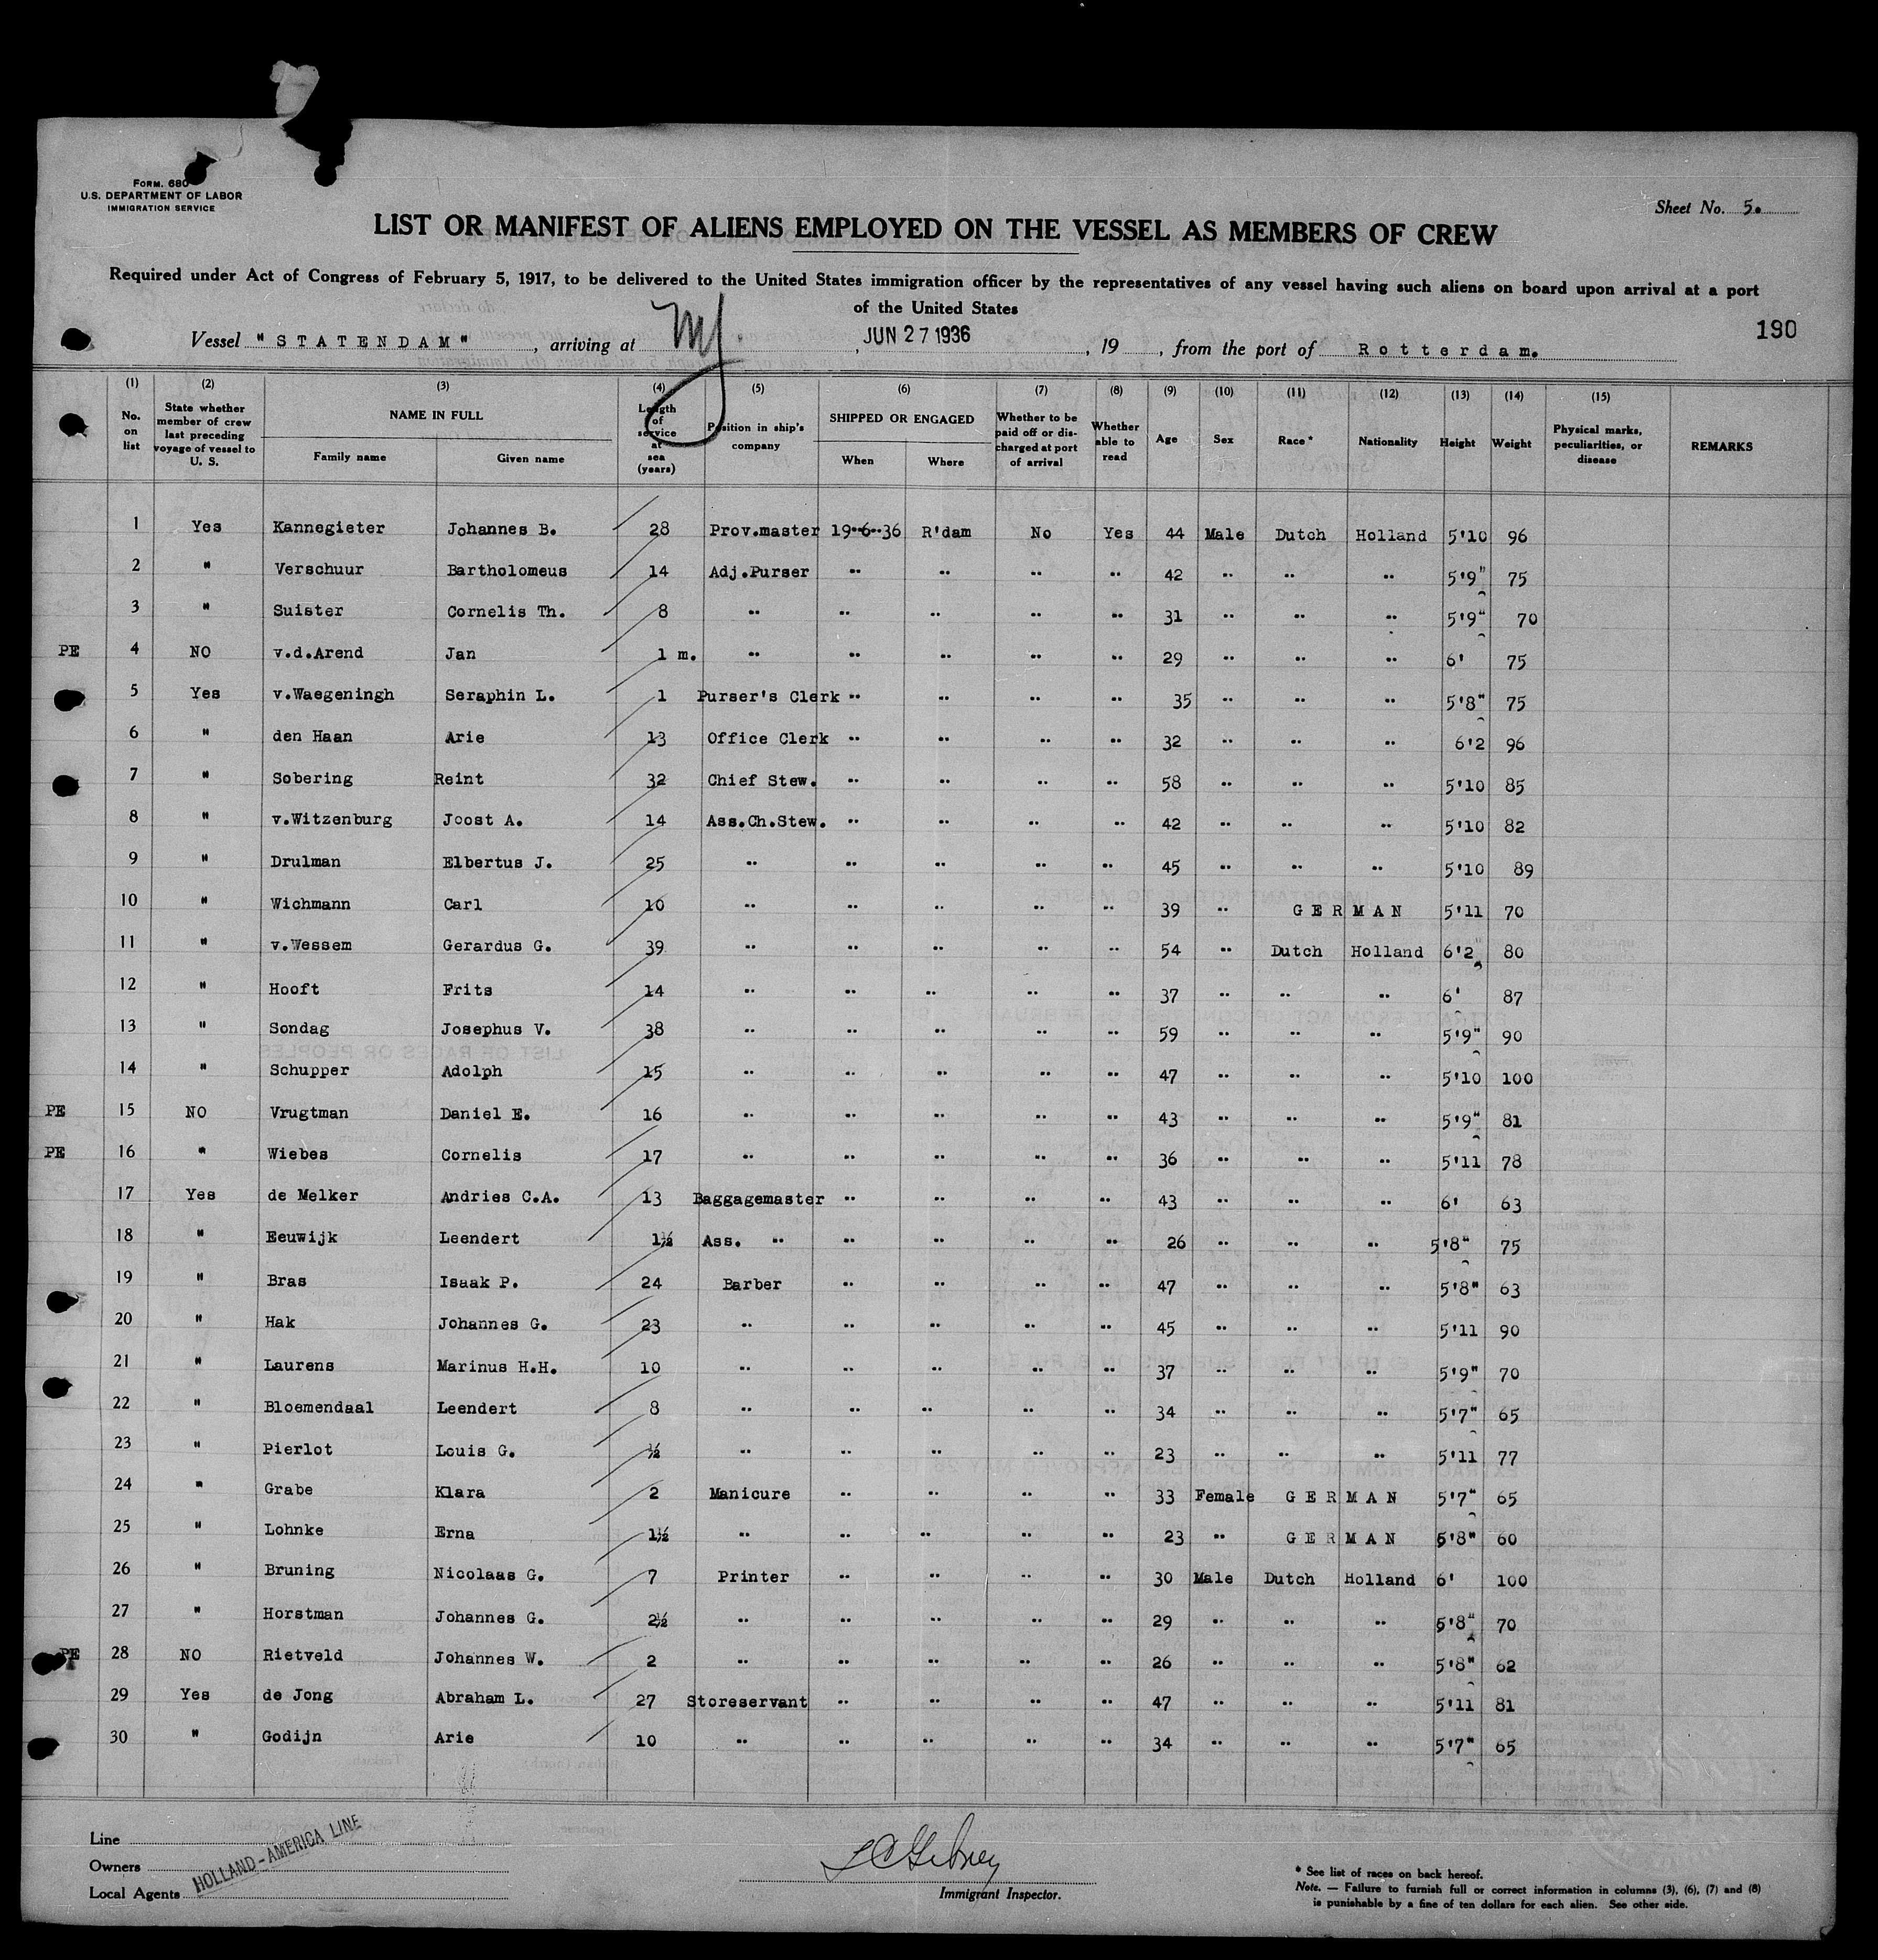 FORM. 680
U.S. DEPARTMENT OF LABOR
IMMIGRATION SERVICE
Sheet No. 5.
LIST OR MANIFEST OF ALIENS EMPLOYED ON THE VESSEL AS MEMBERS OF CREW
Required under Act of Congress of February 5, 1917, to be delivered to the United States immigration officer by the representatives of any vessel having such aliens on board upon arrival at a port
of the United States
190
Vessel "STATENDAM", arriving at NY, JUN 27 1936, 19, from the port of Rotterdam.
(1) No. on list (2) State whether member of crew last preceding voyage of vessel to U. S. (3) NAME IN FULL Family name Given name (4) Length of service at sea (years) (5) Position in ship's company (6) SHIPPED OR ENGAGED When Where (7) Whether to be paid off or discharged at port of arrival (8) Whether able to read (9) Age (10) Sex (11) Race* (12) Nationality (13) Height (14) Weight (15) Physical marks, peculiarities, or disease REMARKS
1 Yes Kannegieter Johannes B. 28 Prov.master 19-6-36 R'dam No Yes 44 Male Dutch Holland 5'10 96
2 " Verschuur Bartholomeus 14 Adj.Purser " " " " 42 " " " 5'9" 75
3 " Suister Cornelis Th. 8 " " " " " 31 " " " 5'9" 70
PE 4 NO v.d.Arend Jan 1 m. " " " " " 29 " " " 6' 75
5 Yes v.Waegeningh Seraphin L. 1 Purser's Clerk " " " " 35 " " " 5'8" 75
6 " den Haan Arie 13 Office Clerk " " " " 32 " " " 6'2 96
7 " Sobering Reint 32 Chief Stew. " " " " 58 " " " 5'10 85
8 " v.Witzenburg Joost A. 14 Ass.Ch.Stew. " " " " 42 " " " 5'10 82
9 " Drulman Elbertus J. 25 " " " " " 45 " " " 5'10 89
10 " Wichmann Carl 10 " " " " " 39 " GERMAN 5'11 70
11 " v.Wessem Gerardus G. 39 " " " " " 54 " Dutch Holland 6'2" 80
12 " Hooft Frits 14 " " " " " 37 " " " 6' 87
13 " Sondag Josephus V. 38 " " " " " 59 " " " 5'9" 90
14 " Schupper Adolph 15 " " " " " 47 " " " 5'10 100
PE 15 NO Vrugtman Daniel E. 16 " " " " " 43 " " " 5'9" 81
PE 16 " Wiebes Cornelis 17 " " " " " 36 " " " 5'11 78
17 Yes de Melker Andries C.A. 13 Baggagemaster " " " " 43 " " " 6' 63
18 " Eeuwijk Leendert 1½ Ass. " " " " " 26 " " " 5'8" 75
19 " Bras Isaak P. 24 Barber " " " " 47 " " " 5'8" 63
20 " Hak Johannes G. 23 " " " " " 45 " " " 5'11 90
21 " Laurens Marinus H.H. 10 " " " " " 37 " " " 5'9" 70
22 " Bloemendaal Leendert 8 " " " " " 34 " " " 5'7" 65
23 " Pierlot Louis G. ½ " " " " " 23 " " " 5'11 77
24 " Grabe Klara 2 Manicure " " " " 33 Female GERMAN 5'7" 65
25 " Lohnke Erna 1½ " " " " " 23 " GERMAN 5'8" 60
26 " Bruning Nicolaas G. 7 Printer " " " " 30 Male Dutch Holland 6' 100
27 " Horstman Johannes G. 2½ " " " " " 29 " " " 5'8" 70
PE 28 NO Rietveld Johannes W. 2 " " " " " 26 " " " 5'8" 62
29 Yes de Jong Abraham L. 27 Storeservant " " " " 47 " " " 5'11 81
30 " Godijn Arie 10 " " " " " 34 " " " 5'7" 65
Line
Owners
Local Agents
HOLLAND-AMERICA LINE
Immigrant Inspector.
* See list of races on back hereof.
Note. — Failure to furnish full or correct information in columns (3), (6), (7) and (8)
is punishable by a fine of ten dollars for each alien. See other side.